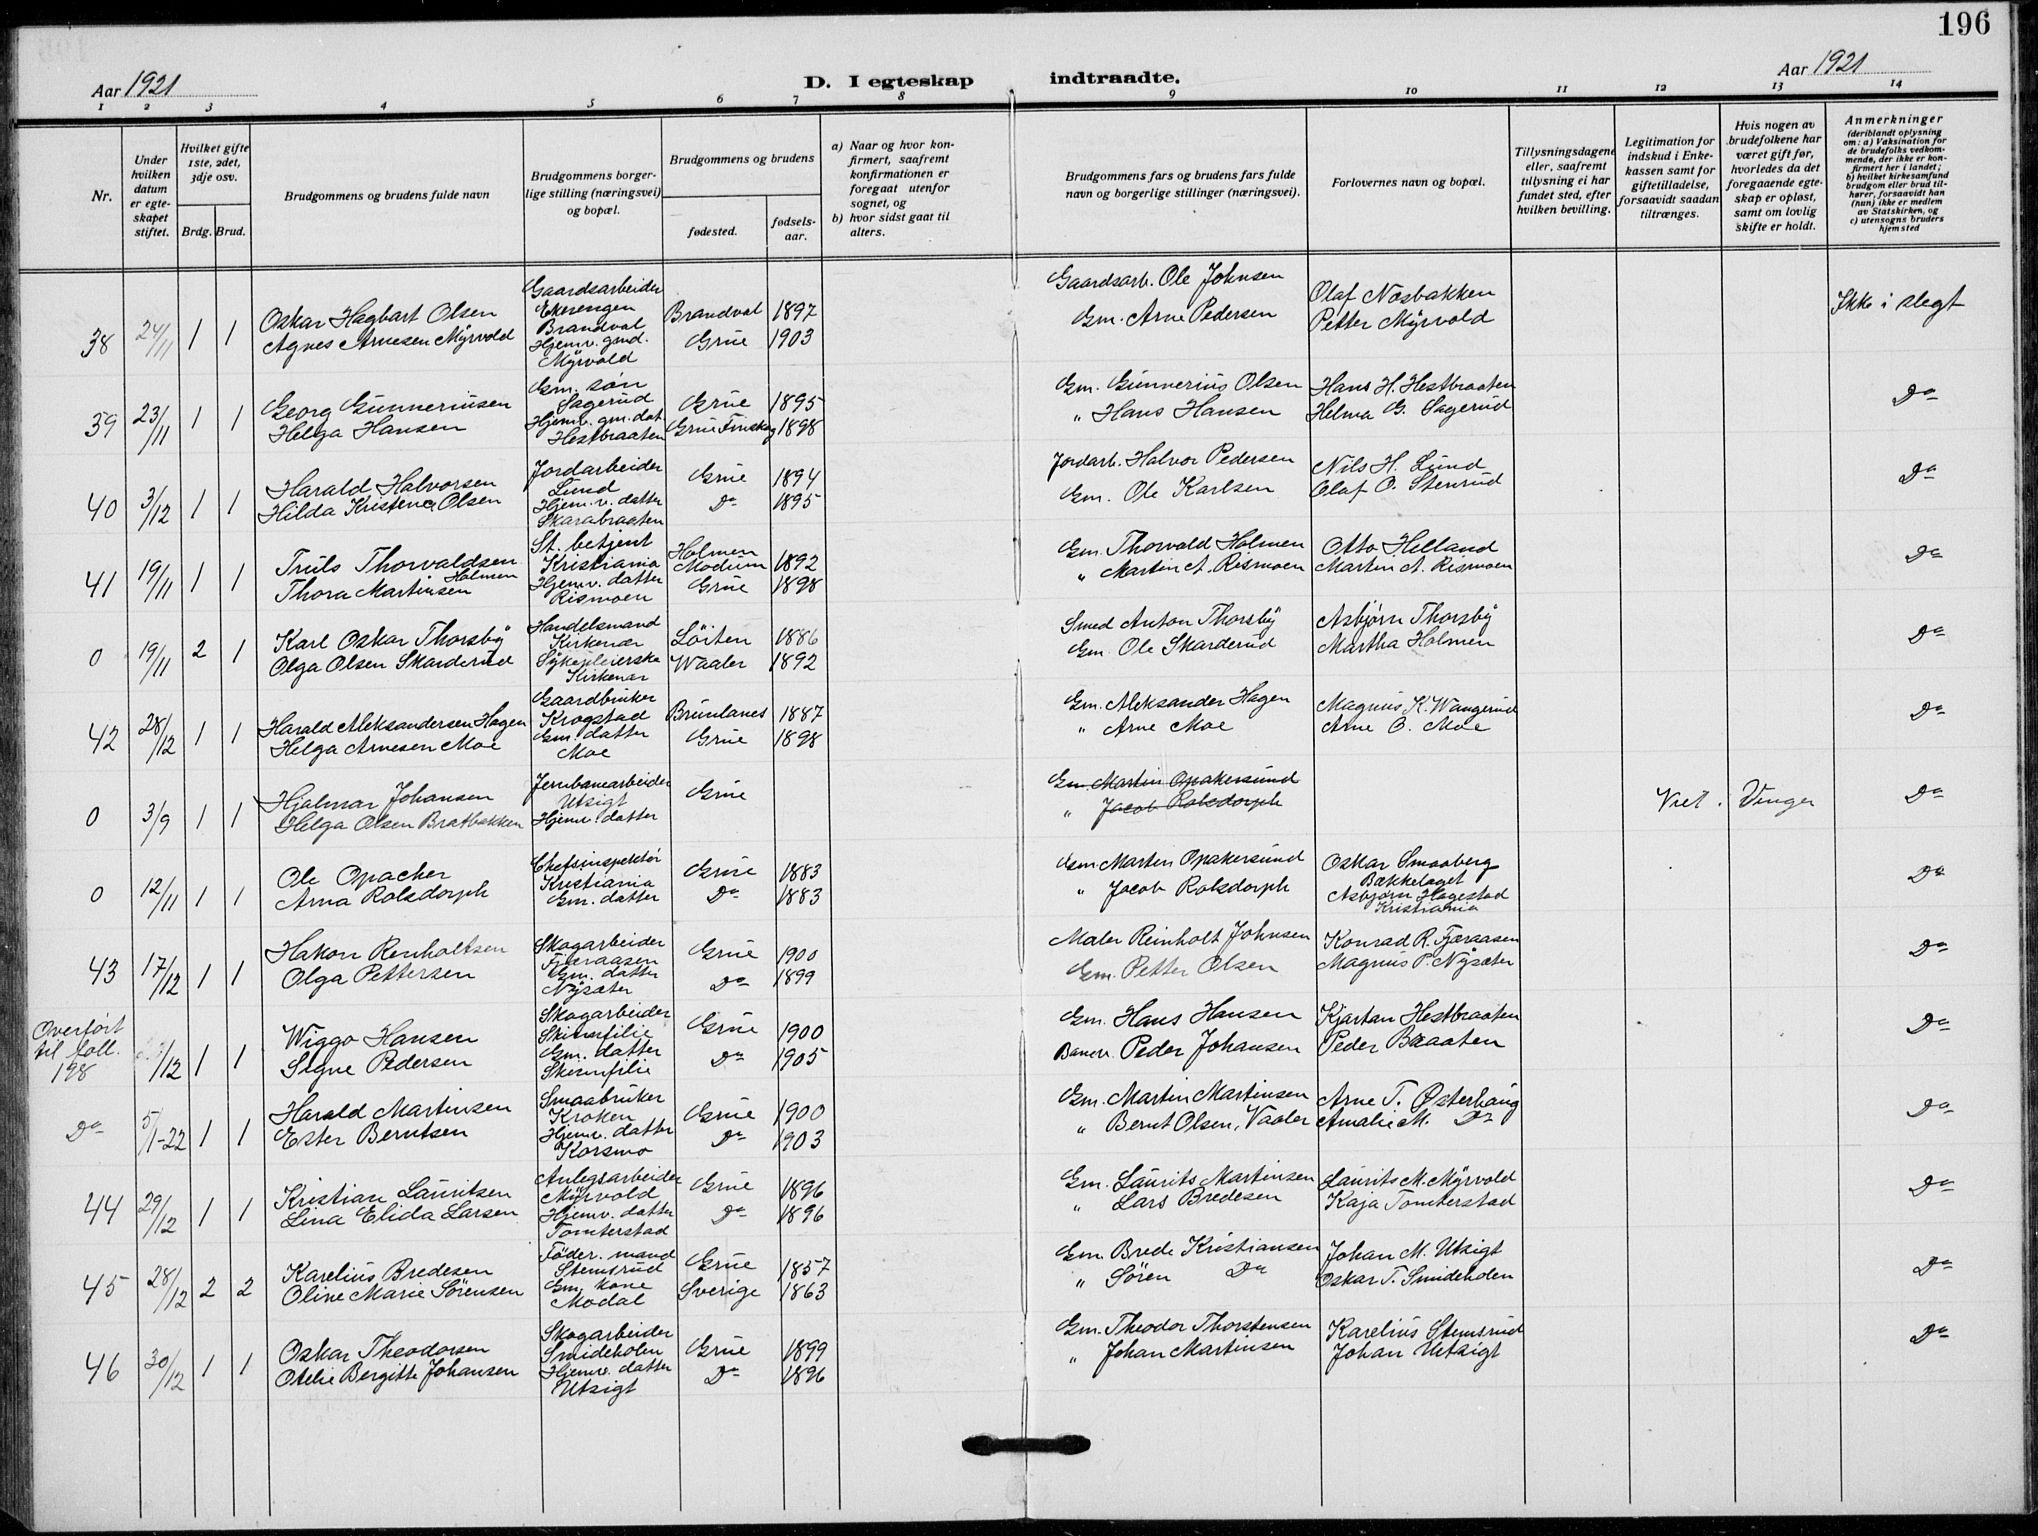 196
Aar 1921
D. I egteskap indtraadte.
Aar 1921
1 2 3 4 5 6 7 8 9 10 11 12 13 14
Nr.
Under hvilken datum er egteskapet stiftet.
Hvilket gifte 1ste, 2det, 3dje osv.
Brdg. Brud.
Brudgommens og brudens fulde navn
Brudgommens borgerlige stilling (næringsvei) og bopæl.
Brudgommens og brudens
fødested.
fødselsaar.
a) Naar og hvor konfirmert, saafremt konfirmationen er foregaat utenfor sognet, og
b) hvor sidst gaat til alters.
Brudgommens fars og brudens fars fulde navn og borgerlige stillinger (næringsvei).
Forlovernes navn og bopæl.
Tillysningsdagene eller, saafremt tillysning ei har fundet sted, efter hvilken bevilling.
Legitimation for indskud i Enkekassen samt for giftetilladelse, forsaavidt saadan tiltrænges.
Hvis nogen av brudefolkene har været gift før, hvorledes da det foregaaende egteskap er opløst, samt om lovlig skifte er holdt.
Anmerkninger
(deriblandt oplysning om: a) Vaksination for de brudefolks vedkommende, der ikke er konfirmert her i landet; b) hvilket kirkesamfund brudgom eller brud tilhører, forsaavidt han (hun) ikke er medlem av Statskirken, og c) utensogns bruders hjemsted
38 24/11 1 1 Oskar Hagbart Olsen Gaardsarbeider Ekerengen Brandval Brandval 1897 Gaardsarb. Ole Johnsen Olaf Næsbakken Ikke i slegt
Agnes Arnesen Myrvold Hjemv. gmd. Myrvold Grue 1903 Gm. Arne Pedersen Petter Myrvold
39 23/11 1 1 Georg Gunneriusen Gm. søn Sagerud Grue 1895 Gm. Gunnerius Olsen Hans H. Hestbraaten Do
Helga Hansen Hjemv. gm. dat. Hestbraaten Grue Finskog 1898 " Hans Hansen Helma G. Sagerud
40 3/12 1 1 Harald Halvorsen Jordarbeider Lund Grue 1894 Jordarb. Halvor Pedersen Nils H. Lund Do
Hilda Kristene Olsen Hjem.v. datter Skarabraaten Do 1895 Gm. Ole Karlsen Olaf O. Stenrud
41 19/11 1 1 Truls Thorvaldsen Holmen St. betjent Kristiania Holmen Modum 1892 Gm. Thorvald Holmen Otto Helland Do
Thora Martinsen Hjemv. datter Rismoen Grue 1898 " Martin A. Rismoen Martin A. Rismoen
0 19/11 2 1 Karl Oskar Thorsby Handelsmand Kirkenær Löiten 1886 Smed Anton Thorsby Asbjørn Thorsby Do
Olga Olsen Skarderud Sykepleierske Kirkenær Waaler 1892 Gm. Ole Skarderud Martha Holmen
42 28/12 1 1 Harald Aleksandersen Hagen Gaardbruker Krogstad Brunlanes 1887 Gm. Aleksander Hagen Magnus K. Wangerud Do
Helga Arnesen Moe Gm. datter Moe Grue 1898 " Arne Moe Arne O. Moe
0 3/9 1 1 Hjalmar Johansen Jernbanearbeider Utsigt Grue Gm Martin Opakersund Viet. Vinger Do
Helga Olsen Bratbakken Hjemv. datter " Jacob Rolsdorph
0 12/11 1 1 Ole Opacher Chefsinspektör Kristiania Grue 1883 Gm Martin Opakersund Oskar Smaaberg Bækkelaget Do
Arna Rolsdorph Gm. datter Do 1883 " Jacob Rolsdorph Asbjørn Hagestad Kristiania
43 17/12 1 1 Hakon Renholtsen Skogarbeider Fjæraasen Grue 1900 Maler Reinholt Johnsen Konrad R. Fjæraasen Do
Olga Pettersen Gm. datter Nysæter Do 1899 Gm. Petter Olsen Magnus P. Nysæter
Overført til foll. 198 /12 1 1 Wiggo Hansen Skogarbeider Skinnfilie Grue 1900 Gm. Hans Hansen Kjartan Hestbraaten Do
Signe Pedersen Gm. datter Skinnfilie Do 1905 Banev. Peder Johansen Peder Braaten
Do 5/1-22 1 1 Harald Martinsen Smaabruker Kroken Grue 1900 Gm. Martin Martinsen Arne T. Østerhaug Do
Ester Berntsen Hjemv. datter Korsmo Do 1903 " Bernt Olsen, Vaaler Amalie M. Do
44 29/12 1 1 Kristian Lauritsen Anlegsarbeider Myrvold Grue 1896 Gm. Laurits Martinsen Laurits M. Myrvold Do
Lina Elida Larsen Hjemv. datter Tomterstad Do 1896 " Lars Bredesen Kaja Tomterstad
45 28/12 2 2 Karelius Bredesen Föder. mand Stemsrud Grue 1857 Gm. Brede Kristiansen Johan M. Utsigt Do
Oline Marie Sörensen Gm. kone Modal Sverige 1863 " Sören Do Oskar T. Smideholen
46 30/12 1 1 Oskar Theodorsen Skogarbeider Smideholen Grue 1899 Gm. Theodor Thorstensen Karelius Stemsrud Do
Otelie Bergitte Johansen Hjemv. datter Utsigt Do 1896 " Johan Martinsen Johan Utsigt